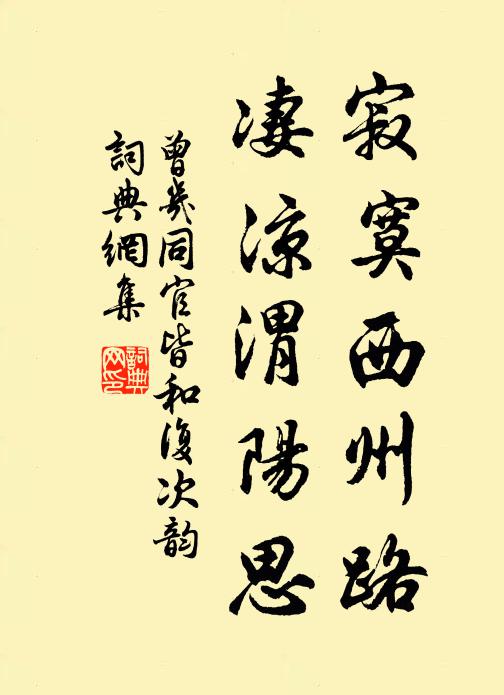 寂寞西州路
凄涼渭陽思
曾幾同官皆和復次韵
詞典網集
詞典网印